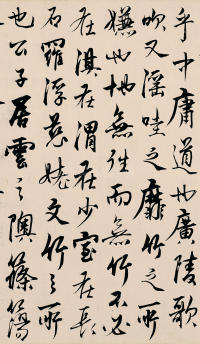 乎中庸道也廣陵歌
吹又淫哇之靡竹之所
嫌也地無往而無竹不必
在淇在渭在少室在長
石羅浮慈姥文竹之所
也公子居雲之隩篠簜